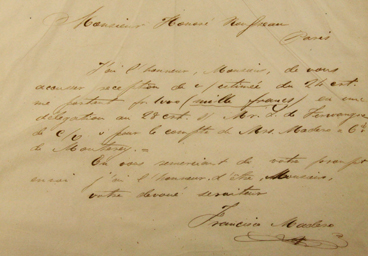 Monsieur Honoré
Paris
J'ai l'honneur, Monsieur, de vous
accuser réception de v/ estimée du 24 ct.
me portant fr 1000 (mille francs) en une
délégation au 28 ct. s/ Mr. J. de
de c/v pour le compte de Mrs. Madero & Cº
de Monterey.=
En vous remerciant de votre prompt
envoi j'ai l'honneur d'être, Monsieur,
votre dévoué serviteur
Francisco Madero